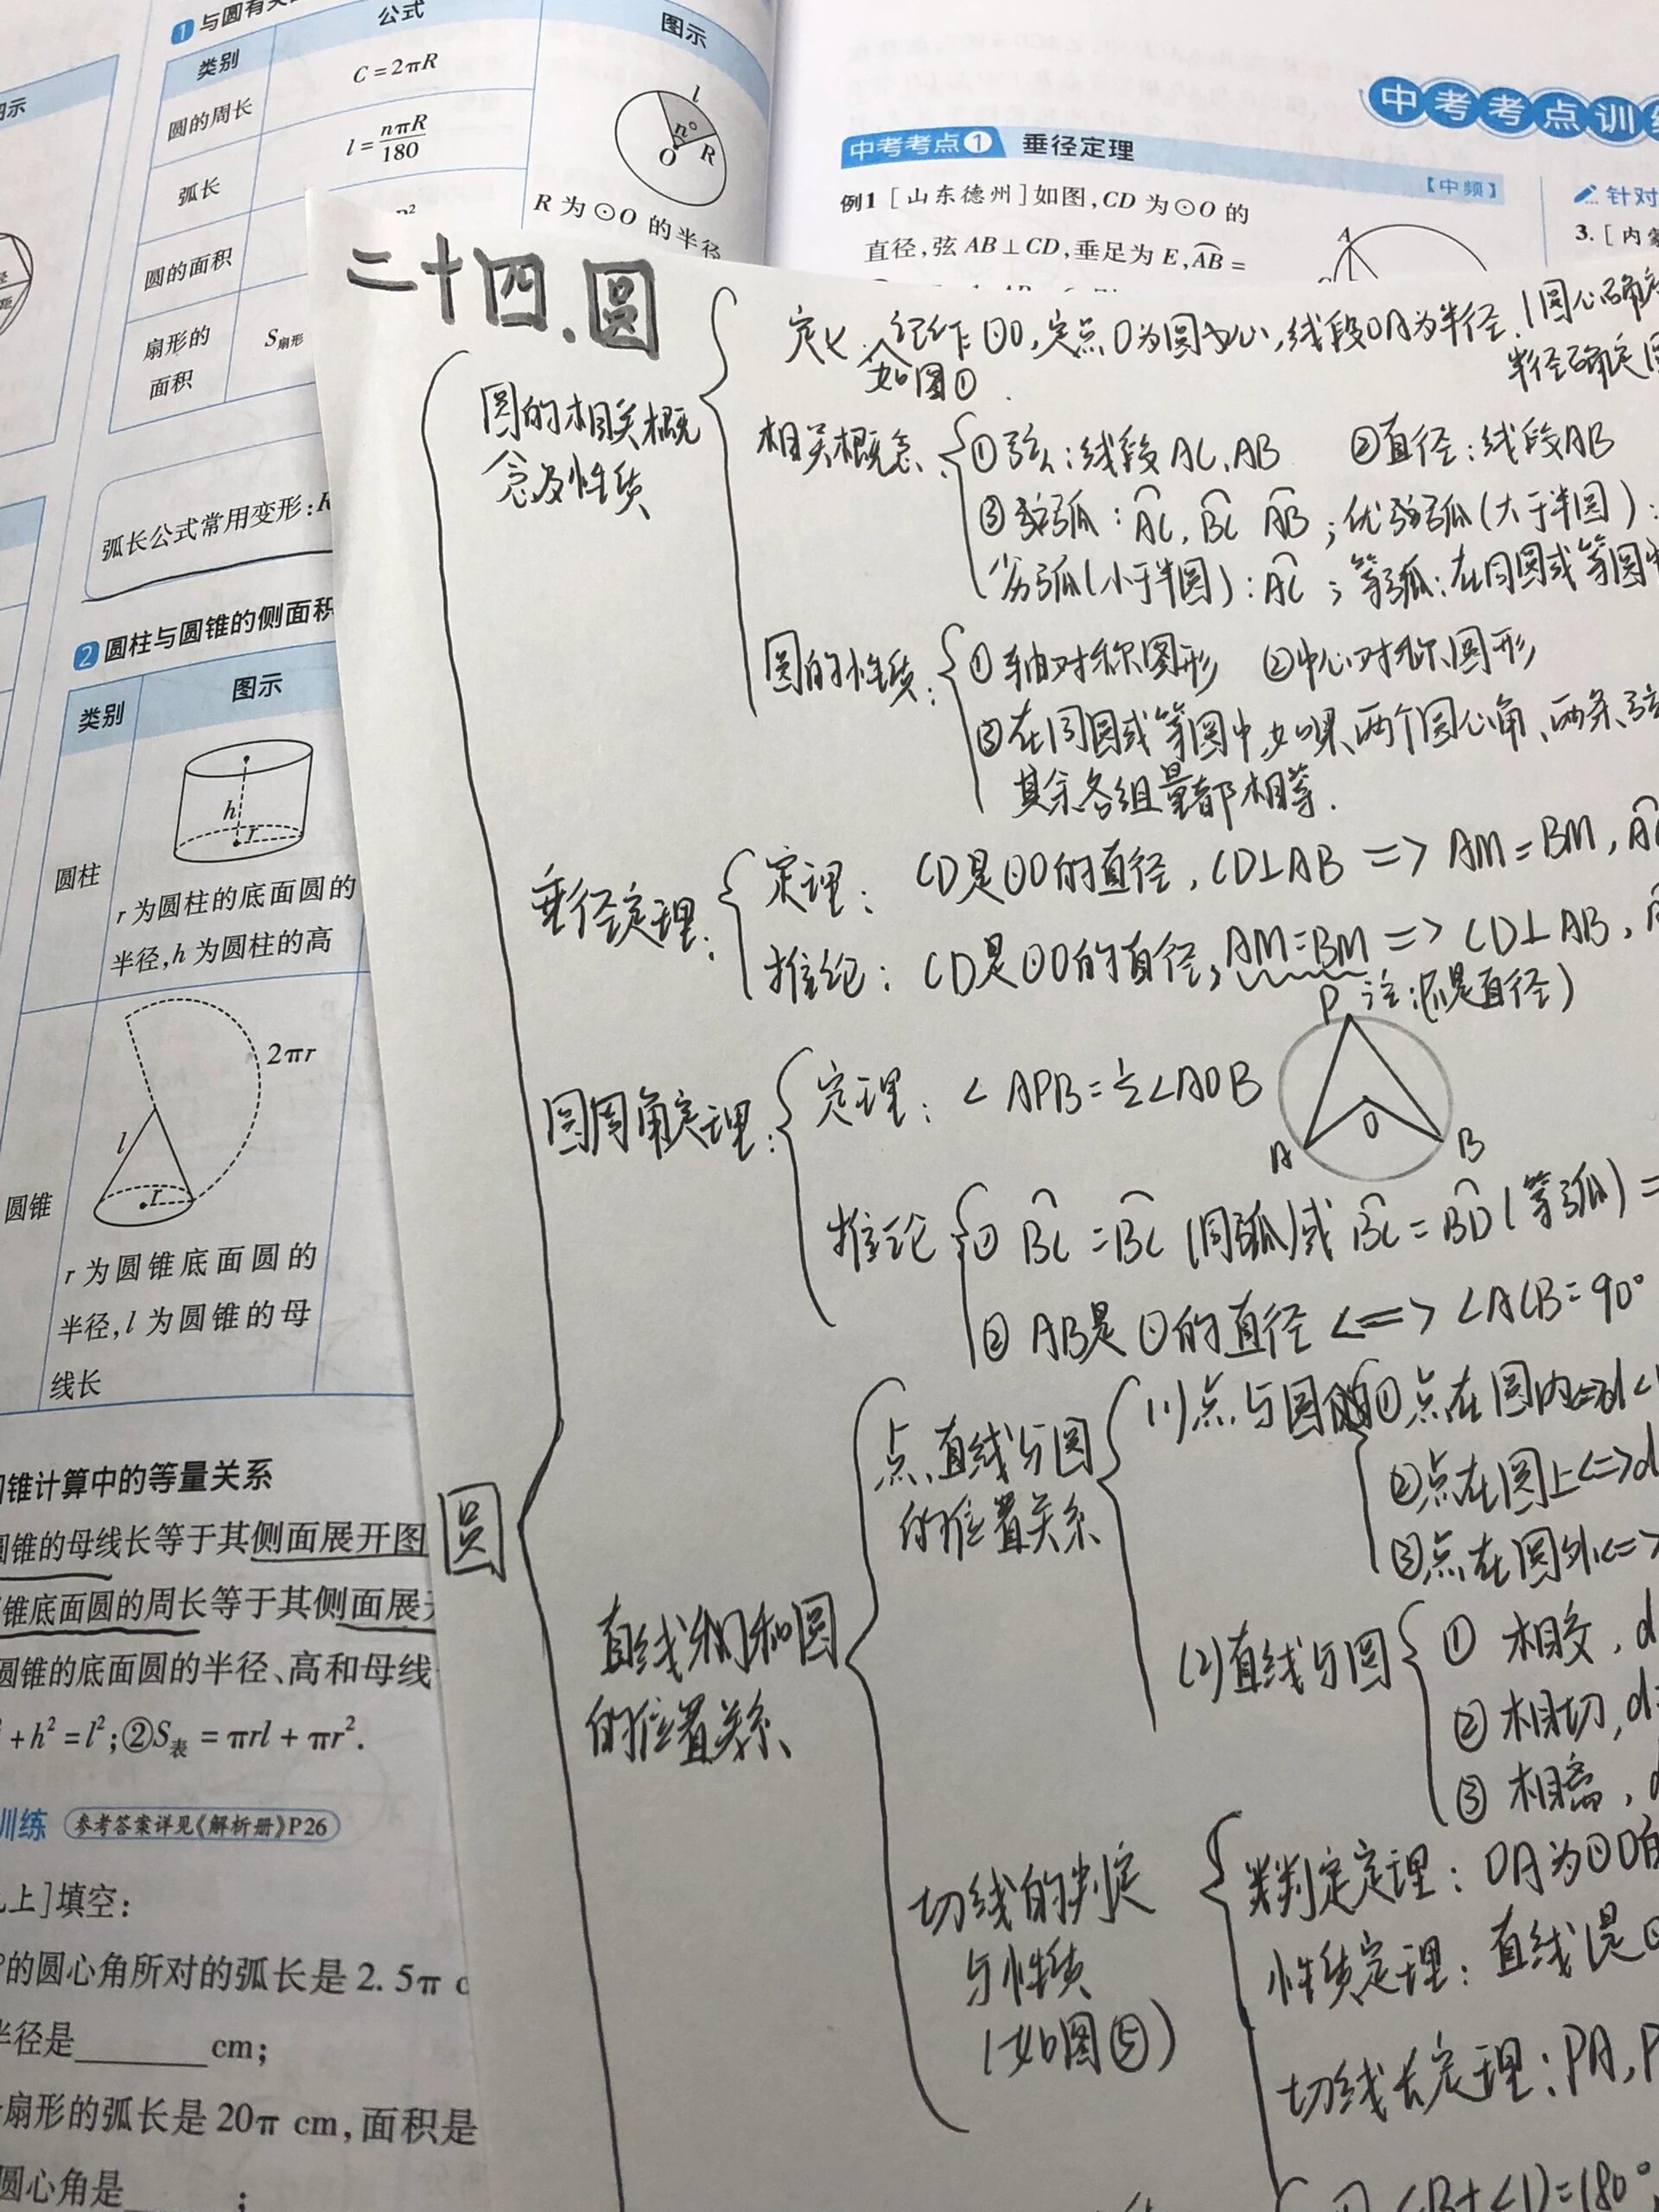 图示
1 与圆有关
公式
图示
类别
C=2πR
圆的周长
l=nπR/180
弧长
l
n°
O R
R 为⊙O 的半径
圆的面积
扇形的
面积
S扇形
弧长公式常用变形:R
2 圆柱与圆锥的侧面积
类别 图示
h
r
圆柱
r 为圆柱的底面圆的
半径,h 为圆柱的高
2πr
l
r
圆锥
r 为圆锥底面圆的
半径,l 为圆锥的母
线长
锥计算中的等量关系
圆锥的母线长等于其侧面展开图
锥底面圆的周长等于其侧面展
圆锥的底面圆的半径、高和母线
+h²=l²;②S表=πrl+πr².
训练 参考答案详见《解析册》P26
上]填空:
的圆心角所对的弧长是 2.5π c
半径是______cm;
扇形的弧长是 20π cm,面积是
圆心角是______;
中考考点训练
中考考点1 垂径定理
【中频】
例1 [山东德州]如图,CD 为⊙O 的
直径,弦 AB⊥CD,垂足为 E,AB=
A
针对
3.[内蒙
二十四.圆
圆
圆的相关概
念及性质
定义 记作⊙O,定点O为圆心,线段OA为半径.(圆心确定
如图①.
半径确定
相关概念 ①弦:线段AC,AB ②直径:线段AB
③弧:AC,BC AB;优弧(大于半圆):
劣弧(小于半圆):AC;等弧:在同圆或等圆中
圆的性质: ①轴对称图形 ②中心对称图形
③在同圆或等圆中,如果两个圆心角、两条弦
其余各组量都相等.
垂径定理: 定理: CD是⊙O的直径,CD⊥AB => AM=BM,
推论: CD是⊙O的直径,AM=BM => CD⊥AB,
注:(不是直径)
圆周角定理: 定理: ∠APB=½∠AOB
P
O
A B
推论 ① BC=BC(同弧)或 BC=BD(等弧)=
② AB是⊙的直径 <=> ∠ACB=90°
直线和圆
的位置关系
点、直线与圆
的位置关系
(1)点与圆 ①点在圆内<=>d<
②点在圆上<=>d
③点在圆外<=>
(2)直线与圆 ① 相交,d
② 相切,d=
③ 相离,d
切线的判定
与性质
(如图⑤)
判定定理:OA为⊙O的
性质定理:直线l是⊙
切线长定理:PA,P
∠B+∠D=180°